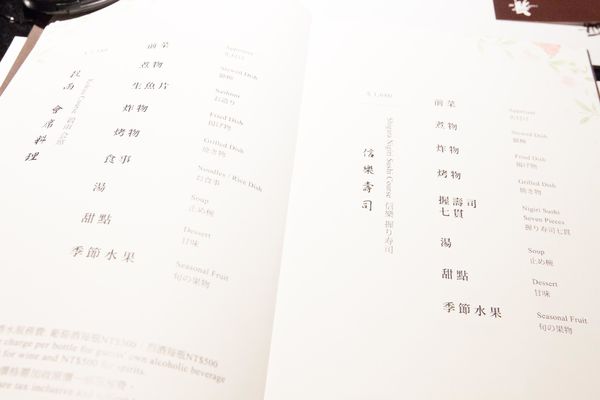 前菜
Appetizer
先付け
煮物
Stewed Dish
御椀
生魚片
Sashimi
お造り
炸物
Fried Dish
揚げ物
烤物
Grilled Dish
焼き物
食事
Noodles / Rice Dish
お食事
湯
Soup
止め椀
甜點
Dessert
甘味
季節水果
Seasonal Fruit
旬の果物
會席料理
charge per bottle for guests' own alcoholic beverage
for wine and NT$500 for spirits.
are tax inclusive and
$ 1,680
信樂壽司
Nigiri Sushi Course 信樂 握り寿司
前菜
Appetizer
先付け
煮物
Stewed Dish
御椀
炸物
Fried Dish
揚げ物
烤物
Grilled Dish
焼き物
握壽司
七貫
Nigiri Sushi
Seven Pieces
握り寿司七貫
湯
Soup
止め椀
甜點
Dessert
甘味
季節水果
Seasonal Fruit
旬の果物